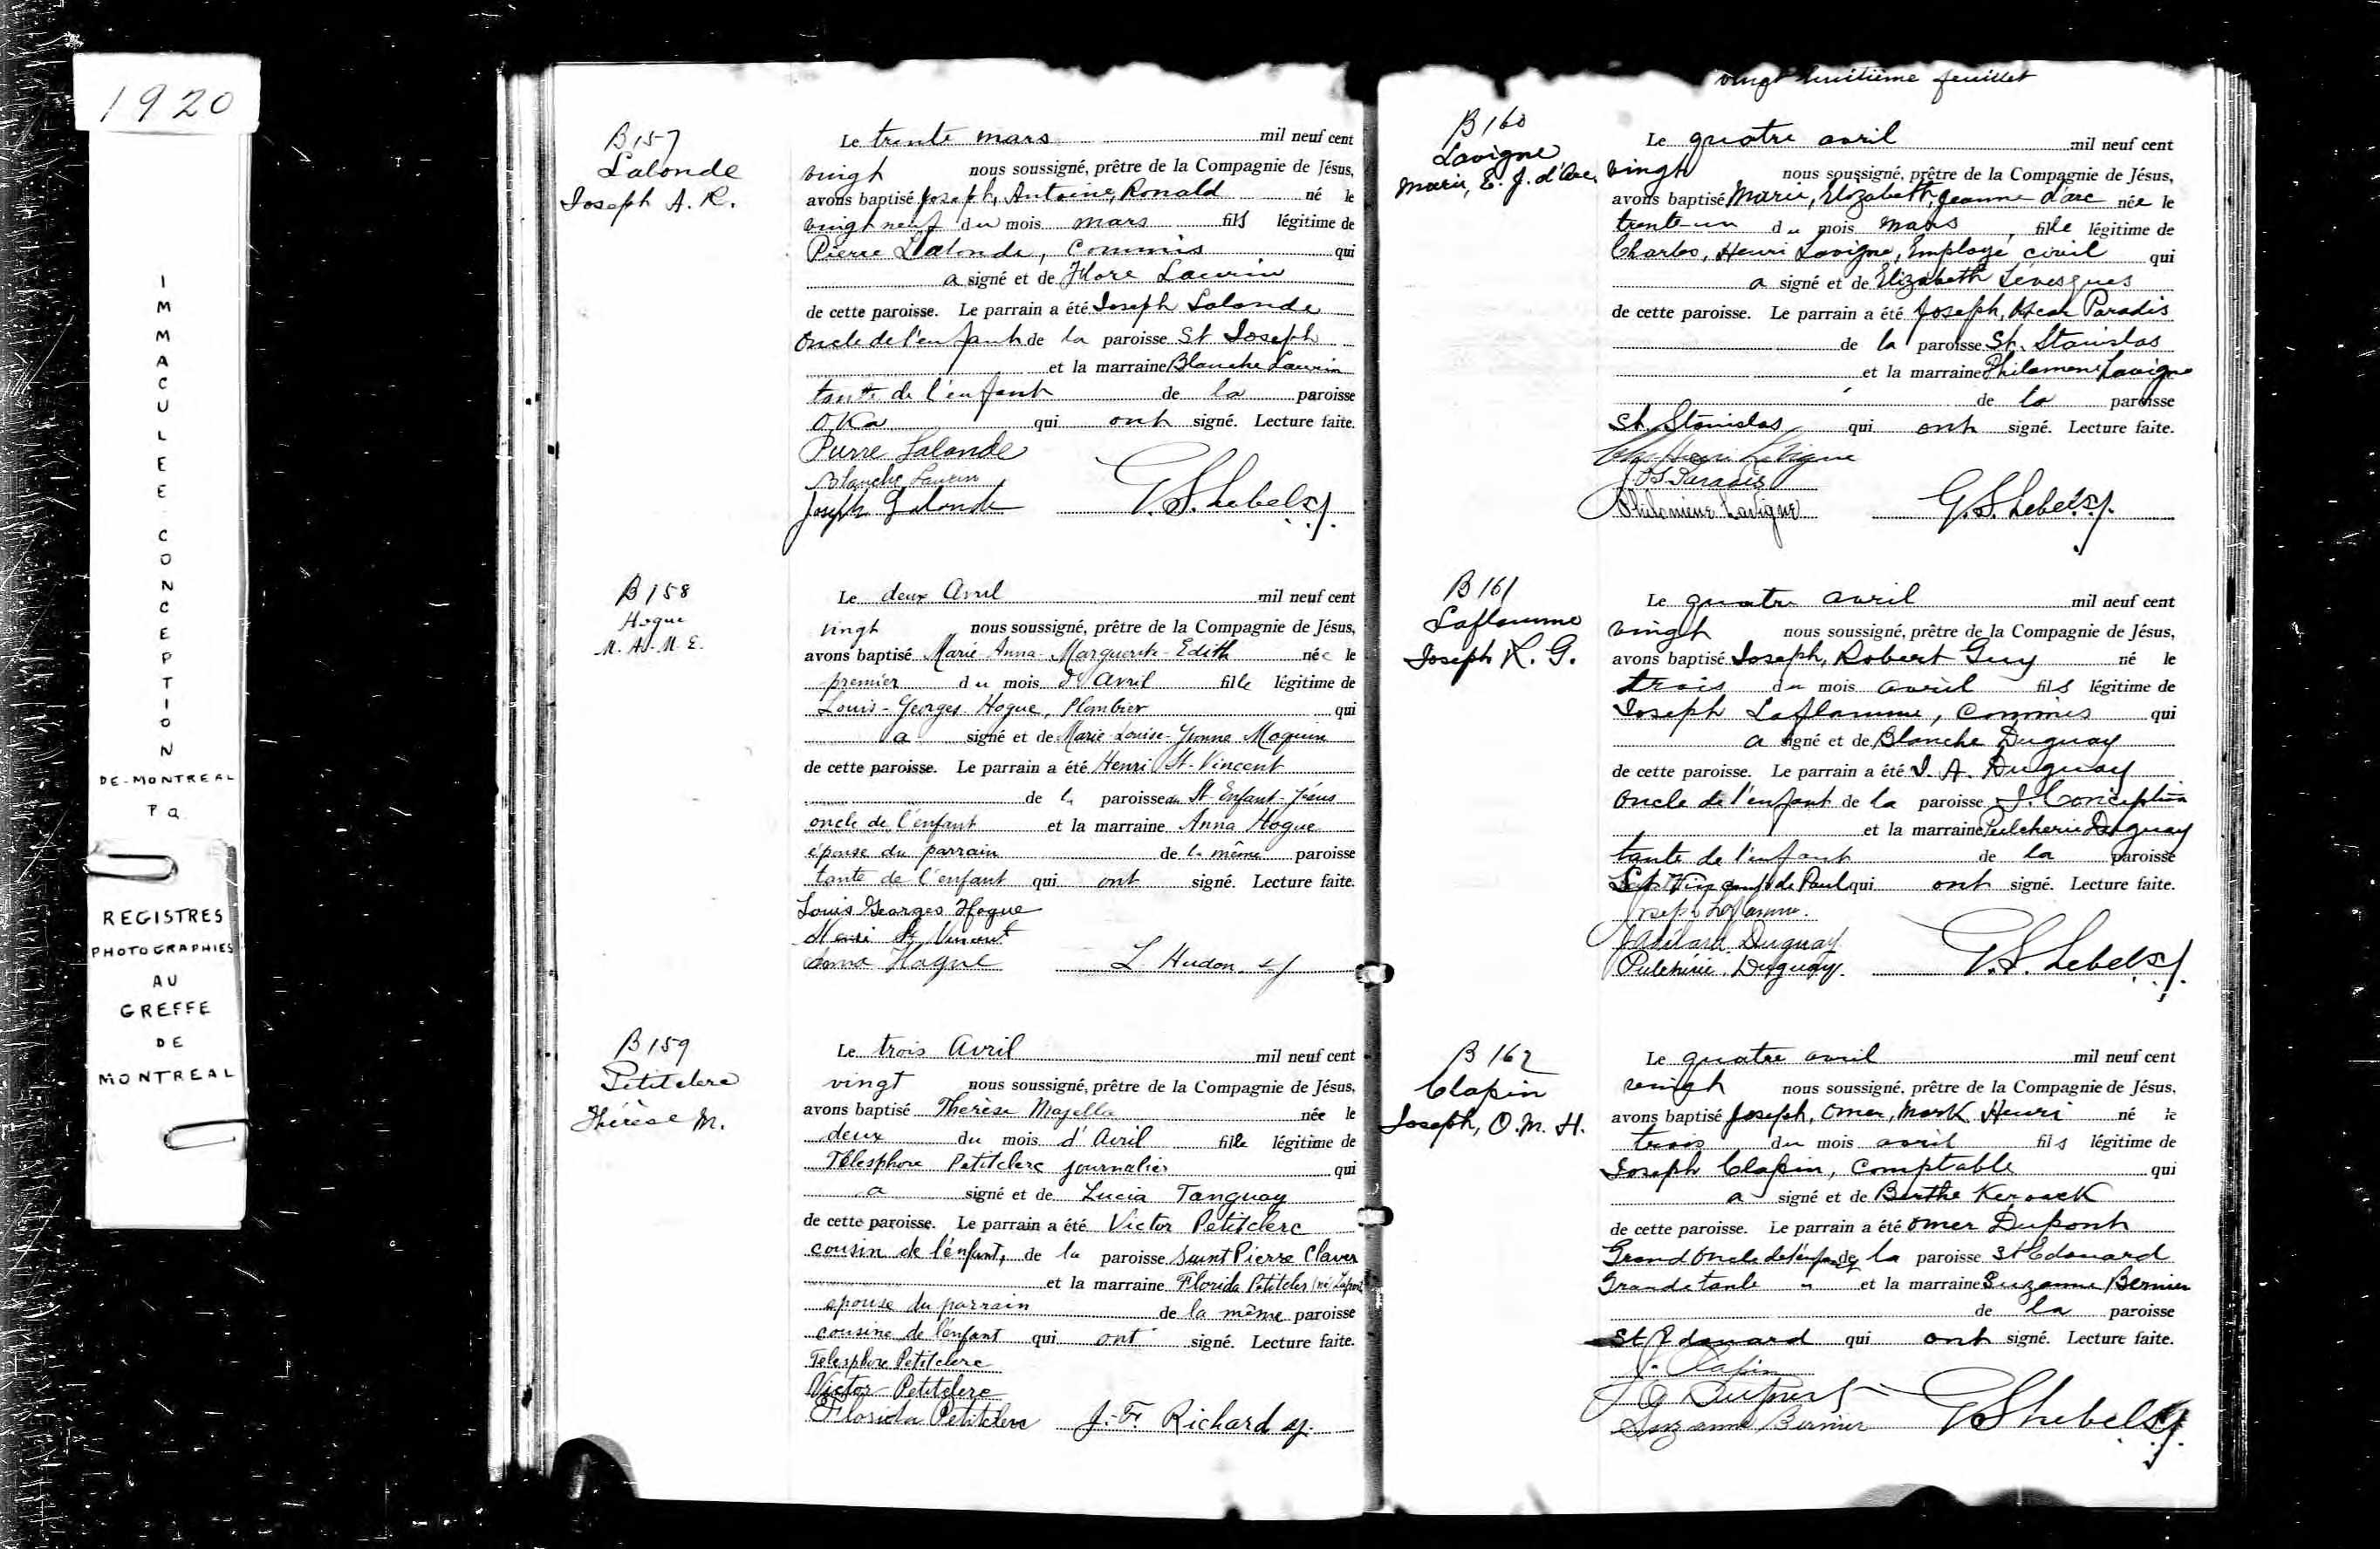 1920
IMMACULEE CONCEPTION
DE-MONTREAL
P Q
REGISTRES
PHOTOGRAPHIES
AU
GREFFE
DE
MONTREAL
B157
Lalonde
Joseph A. R.
Le trente mars mil neuf cent
vingt nous soussigné, prêtre de la Compagnie de Jésus,
avons baptisé Joseph, Antoine, Ronald né le
vingt neuf du mois mars fils légitime de
Pierre Lalonde, Commis qui
a signé et de Flore Laurin
de cette paroisse. Le parrain a été Joseph Lalonde
Oncle de l'enfant de la paroisse St Joseph
et la marraine Blanche Laurin
tante de l'enfant de la paroisse
Oka qui ont signé. Lecture faite.
Pierre Lalonde
Blanche Laurin
Joseph Lalonde G. S. Lebel s.j.
B158
Hogue
M. A. M. E.
Le deux Avril mil neuf cent
vingt nous soussigné, prêtre de la Compagnie de Jésus,
avons baptisé Marie-Anna-Marguerite-Edith née le
premier du mois d'Avril fille légitime de
Louis-Georges Hogue, Plombier qui
a signé et de Marie-Louise-Yvonne Moquin
de cette paroisse. Le parrain a été Henri St-Vincent
de la paroisse du St Enfant-Jésus
oncle de l'enfant et la marraine Anna Hogue
épouse du parrain de la même paroisse
tante de l'enfant qui ont signé. Lecture faite.
Louis Georges Hogue
Henri St Vincent
Anna Hogue L Hudon sj
B159
Petitclerc
Thérèse M.
Le trois Avril mil neuf cent
vingt nous soussigné, prêtre de la Compagnie de Jésus,
avons baptisé Thérèse Majella née le
deux du mois d'Avril fille légitime de
Télesphore Petitclerc journalier qui
a signé et de Lucia Tanguay
de cette paroisse. Le parrain a été Victor Petitclerc
cousin de l'enfant, de la paroisse Saint Pierre Claver
et la marraine Florida Petitclerc
épouse du parrain de la même paroisse
cousine de l'enfant qui ont signé. Lecture faite.
Telesphore Petitclerc
Victor Petitclerc
Florida Petitclerc J. F. Richard sj.
vingt huitième feuillet
B160
Lavigne
Marie, E. J. d'Arc
Le quatre avril mil neuf cent
vingt nous soussigné, prêtre de la Compagnie de Jésus,
avons baptisé Marie, Elizabeth, Jeanne d'arc née le
trente-un du mois mars, fille légitime de
Charles, Henri Lavigne, Employé civil qui
a signé et de Elizabeth Levesques
de cette paroisse. Le parrain a été Joseph, Oscar Paradis
de la paroisse St. Stanislas
et la marraine Philomene Lavigne
de la paroisse
St. Stanislas qui ont signé. Lecture faite.
Chs-Henri Lavigne
Paradis
Philomène Lavigne G. S. Lebel s.j.
B161
Laflamme
Joseph R. G.
Le quatre avril mil neuf cent
vingt nous soussigné, prêtre de la Compagnie de Jésus,
avons baptisé Joseph, Robert Guy né le
trois du mois avril fils légitime de
Joseph Laflamme, Commis qui
a signé et de Blanche Duguay
de cette paroisse. Le parrain a été J. A. Duguay
Oncle de l'enfant de la paroisse I. Conception
et la marraine Pulcherie Duguay
tante de l'enfant de la paroisse
St. Vincent de Paul qui ont signé. Lecture faite.
Joseph Laflamme.
J Adélard Duguay
Pulchérie Duguay. G. S. Lebel s.j.
B162
Clapin
Joseph, O. M. H.
Le quatre avril mil neuf cent
vingt nous soussigné, prêtre de la Compagnie de Jésus,
avons baptisé Joseph, Omer, Mark Henri né le
trois du mois avril fils légitime de
Joseph Clapin, Comptable qui
a signé et de Berthe Kerouck
de cette paroisse. Le parrain a été Omer Dupont
Grand Oncle de l'enfant de la paroisse St Edouard
Grande tante " et la marraine Suzanne Bernier
de la paroisse
St Edouard qui ont signé. Lecture faite.
J. Clapin
J O Dupont
Suzanne Bernier G S Lebel s.j.